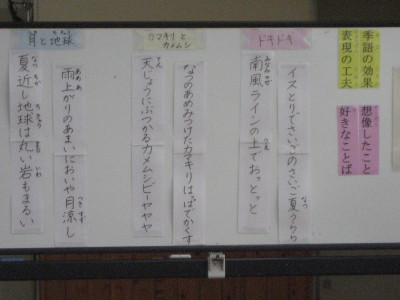 季語の効果
表現の工夫
想像したこと
好きなことば
ドキドキ
イスとりでさいごのさいご夏うらら
南風ラインの上でおっとっと
カマキリとカメムシ
なつのあめみつけたカマキリは
天じょうにぶつかるカメムシビーヤヤヤ
月と地球
雨上がりのあまいにおいや月涼し
夏近し地球は丸い岩もまるい